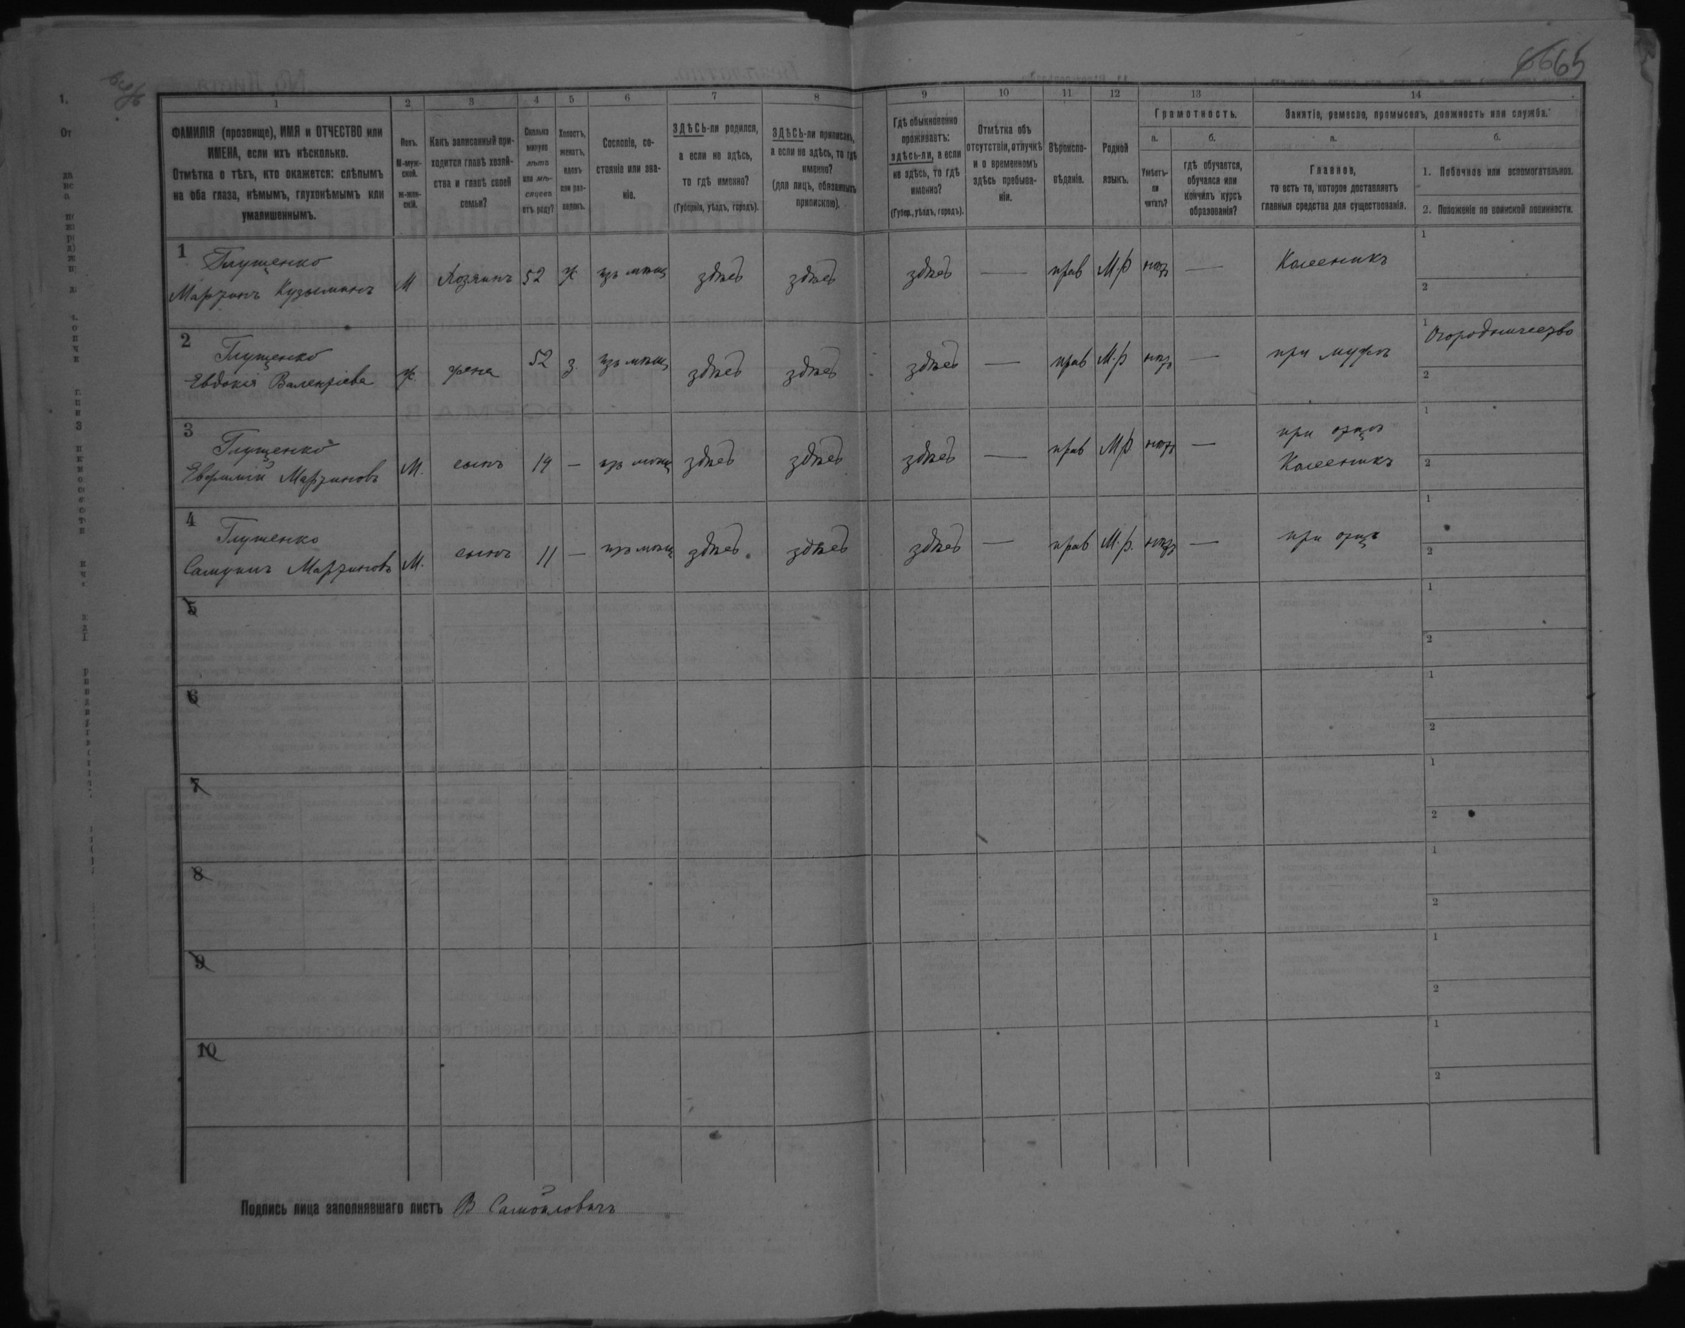 65
1 2 3 4 5 6 7 8 9 10 11 12 13 14
ФАМИЛІЯ (прозвище), ИМЯ и ОТЧЕСТВО или
ИМЕНА, если ихъ нѣсколько.
Отмѣтка о тѣхъ, кто окажется: слѣпымъ
на оба глаза, нѣмымъ, глухонѣмымъ или
умалишеннымъ.
Полъ.
М-муж-
ской.
ж-жен-
скій.
Какъ записанный при-
ходится главѣ хозяй-
ства и главѣ своей
семьи?
Сколько
минуло
лѣтъ
или мѣ-
сяцевъ
отъ роду?
Холостъ,
женатъ,
вдовъ
или раз-
веденъ.
Сословіе, со-
стояніе или зва-
ніе.
ЗДѢСЬ-ли родился,
а если не здѣсь,
то гдѣ именно?
(Губернія, уѣздъ, городъ).
ЗДѢСЬ-ли приписанъ,
а если не здѣсь, то гдѣ
именно?
(для лицъ, обязанныхъ
припискою).
Гдѣ обыкновенно
проживаетъ:
здѣсь-ли, а если
не здѣсь, то гдѣ
именно?
(Губер., уѣздъ, городъ).
Отмѣтка объ
отсутствіи, отлучкѣ
и о временномъ
здѣсь пребыва-
ніи.
Вѣроиспо-
вѣданіе.
Родной
языкъ.
Грамотность.
а.
Умѣетъ-
ли
читать?
б.
гдѣ обучается,
обучался или
кончилъ курсъ
образованія?
Занятіе, ремесло, промыселъ, должность или служба.
а.
Главное,
то есть то, которое доставляетъ
главныя средства для существованія.
б.
1. Побочное или вспомогательное.
2. Положеніе по воинской повинности.
1
Глущенко
Мартинъ Кузьминъ М Хозяинъ 52 ж здѣсь здѣсь здѣсь — прав М.р нѣтъ — Колесникъ
1
2
2
Глущенко
Евдокія ж жена 52 з здѣсь здѣсь здѣсь — прав М.р нѣтъ — при мужѣ
1 Огородничество
2
3
Глущенко
Мартиновъ М. сынъ 19 — здѣсь здѣсь здѣсь — прав М.р нѣтъ — при отцѣ
Колесникъ
1
2
4
Глущенко
Мартиновъ М. сынъ 11 — здѣсь здѣсь здѣсь — прав М.р. нѣтъ — при отцѣ
1
2
5
1
2
6
1
2
7
1
2
8
1
2
9
1
2
10
1
2
Подпись лица заполнявшаго листъ В Самойловичъ